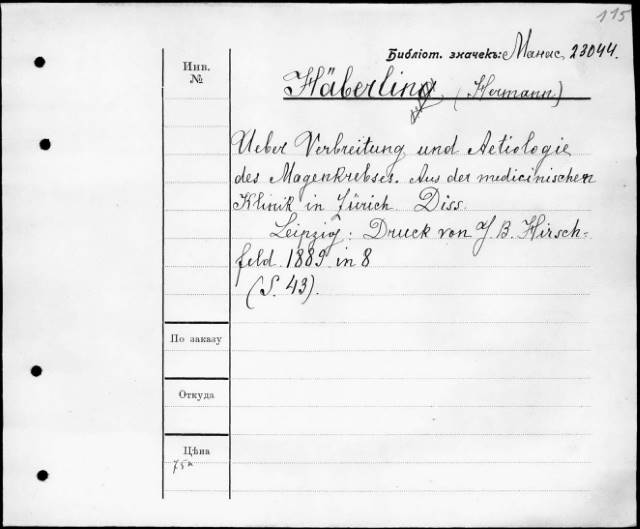 115
Библіот. значекъ: Манис, 23044.
Инв.
№
Häberlin (Hermann)
Ueber Verbreitung und Aetiologie
des Magenkrebses. Aus der medicinischen
Klinik in Zürich Diss.
Leipzig: Druck von J. B. Hirsch-
feld 1889 in 8
(S. 43).
По заказу
Откуда
Цѣна